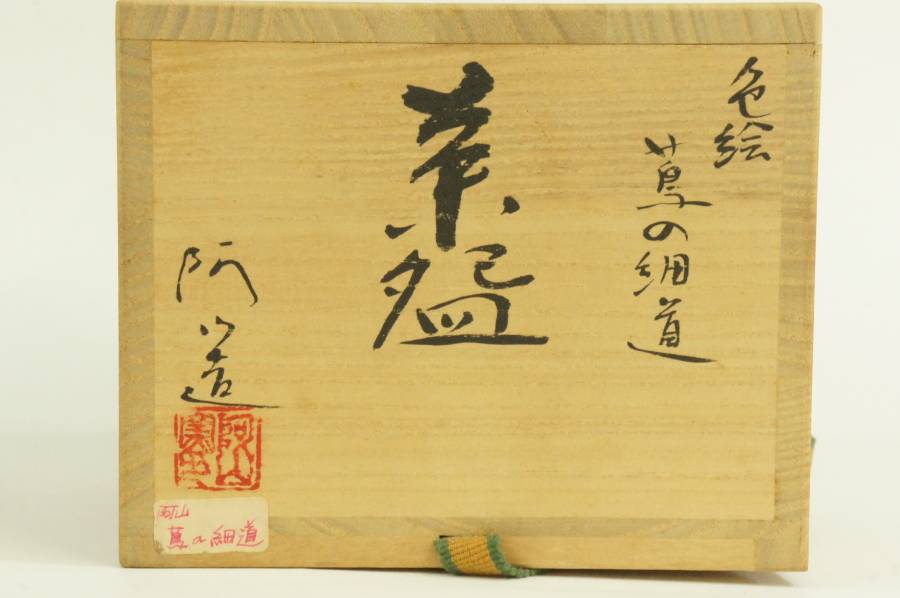 色絵
蔦の細道
茶碗
阿山造
阿山
蔦の細道